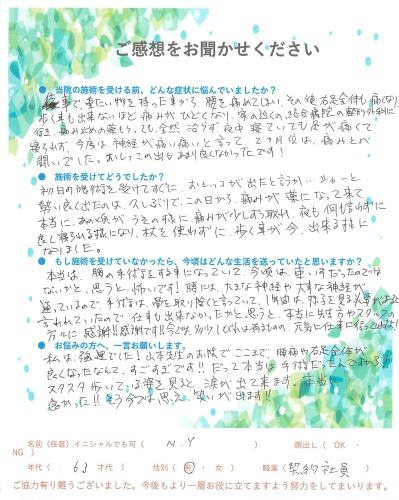 ご感想をお聞かせください
● 当院の施術を受ける前、どんな症状に悩んでいましたか？
仕事で、重たい物を持った事から、腰を痛めてしまい、その後右足全体も痛くなり
歩く事も出来ないほど痛みがひどくなり、家の近くの総合病院の整形外科に
行き、痛み止めの薬もらっても、全然治らず夜中寝ていても足が痛くて
寝られず、今度は、神経が痛い痛いと言って、2ヶ月位は、痛みと
聞いでした。おしっこの出もあまり良くなかったです！
● 施術を受けてどうでしたか？
初日の施術を受けてすぐに、おしっこが出たと言うか…シャーと
勢い良く出たのは、久しぶりで、この日から、痛みが楽になって来て
本当に、あの痛みがうその様に痛みが少しずつ取れ、夜も何も言わずに
良く寝られる様になり、杖を使わずに、歩く事が今、出来る様に
なりました。
● もし施術を受けていなかったら、今頃はどんな生活を送っていたと思いますか？
本当は、腰の手術をする事になっていて、今頃は、車いすだったのでは
ないかと、思うと、怖いです！腰には、大きな神経や大事な神経が
通っているので、手術は、骨を取り除くと言っていて、1年間は、様子を見る必要があると
言われていたので、仕事も出来なかったかと思うと、本当に先生方やスタッフの
方々に感謝!!感謝です!!今では、多少しびれは有るものの、元気に仕事に行ってます！
● お悩みの方へ、一言お願いします。
私は、強運でした！山本先生のお陰でここまで、腰痛や右足全体が
良くなったなんて、すごすぎです!!だって本当は手術だったんですから!!
スタスタ歩いている姿を見ると、涙が出て来ます。本当に
良かった!!そう今では思え、笑いが出ます!!
名前（任意）イニシャルでも可（ N.Y ） 顔出し（ OK ・
NG ）
年代（ 63 才代 ） 性別（ 男 ・ 女 ） 職業（ 契約社員 ）
ご協力有り難うございました。今後もより一層お役に立てますよう努力をしてまいります。